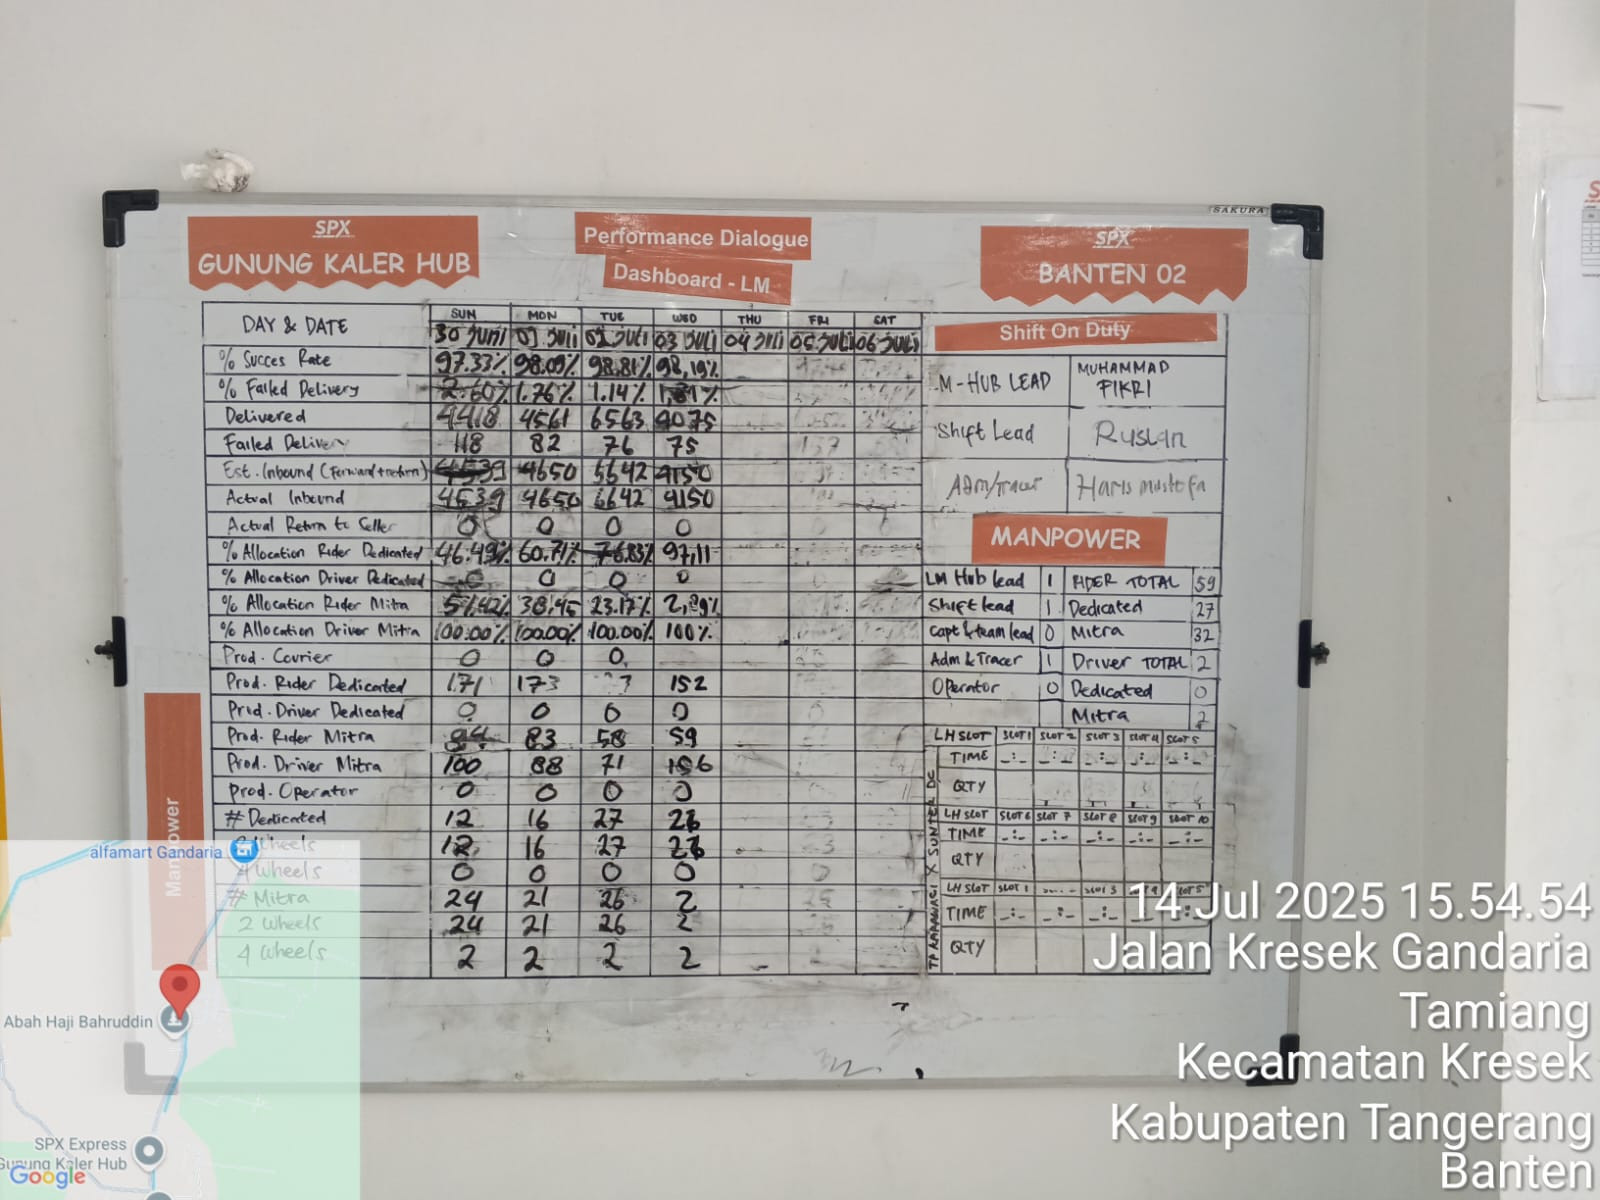 SAKURA
SPX
GUNUNG KALER HUB
Performance Dialogue
Dashboard - LM
SPX
BANTEN 02
DAY & DATE SUN MON TUE WED THU FRI SAT
30 Juni 01 Juli 02 Juli 03 Juli 04 Juli 05 Juli 06 Juli
% Succes Rate 97.33% 98.09% 98.81% 98,19%
% Failed Delivery 2.60% 1.76% 1.14%
Delivered 4418 4561 6563 9075
Failed Delivery 118 82 76 75
Est. Inbound (Forward+return) 4539 4650 6642 9150
Actual Inbound 4539 4650 6642 9150
Actual Return to Seller 0 0 0 0
% Allocation Rider Dedicated 46.49% 60.71% 76.83% 97,11
% Allocation Driver Dedicated 0 0 0 0
% Allocation Rider Mitra 51.42% 38.45 23.17%
% Allocation Driver Mitra 100.00% 100.00% 100.00% 100%
Prod. Courier 0 0 0
Prod. Rider Dedicated 171 173 152
Prod. Driver Dedicated 0 0 0 0
Prod. Rider Mitra 94 83 58 59
Prod. Driver Mitra 100 88 71 156
Prod. Operator 0 0 0 0
# Dedicated 12 16 27 26
Wheels 12 16 27 26
Wheels 0 0 0 0
# Mitra 24 21 26 2
2 Wheels 24 21 26 2
4 Wheels 2 2 2 2
Manpower
Shift On Duty
M-HUB LEAD MUHAMMAD FIKRI
Shift Lead Ruslan
Adm/Tracer Haris mustofa
MANPOWER
LM Hub Lead 1 RIDER TOTAL 59
Shift lead 1 Dedicated 27
Capt & team lead 0 Mitra 32
Adm & Tracer 1 Driver TOTAL 2
Operator 0 Dedicated 0
Mitra 2
LH SLOT SLOT 1 SLOT 2 SLOT 3 SLOT 4 SLOT 5
TIME -:- -:- -:- -:- -:-
QTY
LH SLOT SLOT 6 SLOT 7 SLOT 8 SLOT 9 SLOT 10
TIME -:- -:- -:- -:-
QTY
LH SLOT SLOT 1 SLOT 3
TIME -:- -:- -:- -:-
QTY
X SUNTER DC
14 Jul 2025 15.54.54
Jalan Kresek Gandaria
Tamiang
Kecamatan Kresek
Kabupaten Tangerang
Banten
alfamart Gandaria
Abah Haji Bahruddin
SPX Express
Gunung Kaler Hub
Google